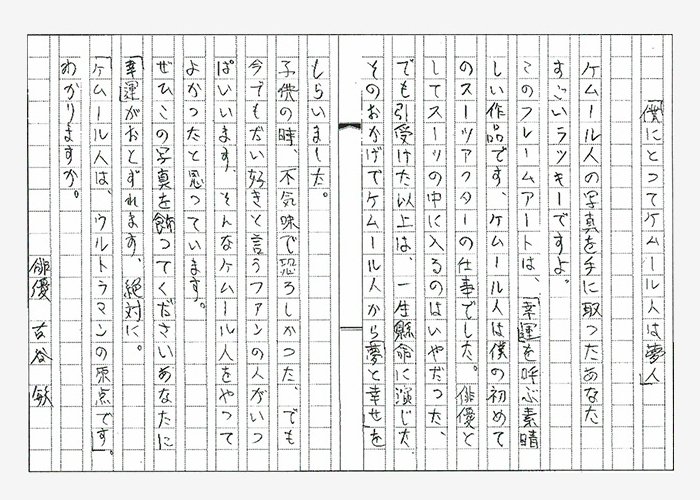 「僕にとってケムール人は夢人」
ケムール人の写真を手に取ったあなた
すごいラッキーですよ。
このフレームアートは、「幸運を呼ぶ素晴
しい作品です、ケムール人は僕の初めて
のスーツアクターの仕事でした。俳優と
してスーツの中に入るのはいやだった、
でも引受けた以上は、一生懸命に演じた
そのおかげでケムール人から「夢と幸せ」を
もらいました。
子供の時、不気味で恐ろしかった、でも
今でもだい好きと言うファンの人がいっ
ぱいいます、そんなケムール人をやって
よかったと思っています。
ぜひこの写真を飾ってくださいあなたに
「幸運がおとずれます、絶対に。
「ケムール人は、ウルトラマンの原点です」
わかりますか。
俳優 古谷 敏